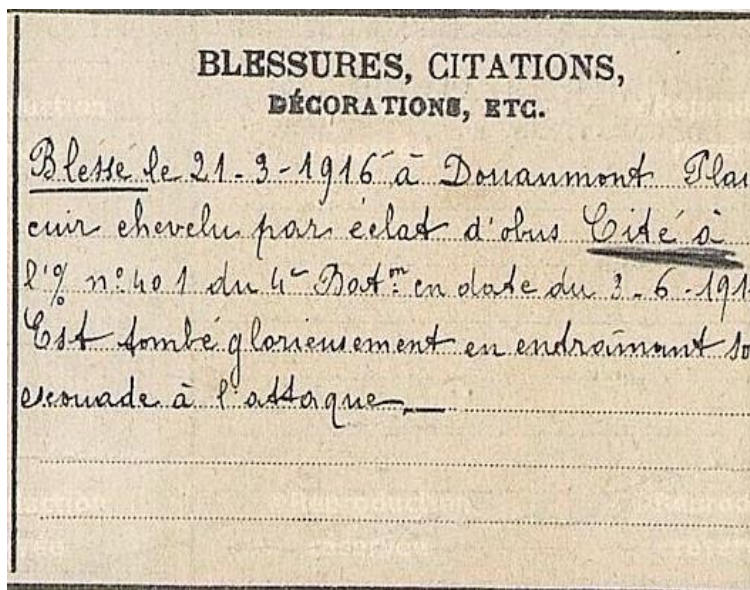 BLESSURES, CITATIONS,
DÉCORATIONS, ETC.
Blessé le 21-3-1916 à Douaumont Plai
cuir chevelu par éclat d'obus Cité à
l'% n° 401 du 4e Batm en date du 3-6-191
Est tombé glorieusement en endraînant so
escouade à l'attaque